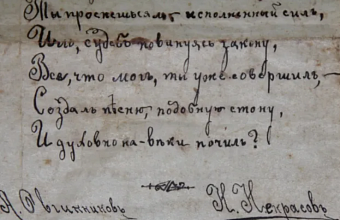 Ты проснешься-ль исполненный силъ,
Иль, судебъ повинуясь закону,
Все, что могъ, ты уже совершилъ, —
Создалъ пѣсню, подобную стону,
И духовно на-вѣки почилъ?
А. Овчинниковъ
Н. Некрасовъ